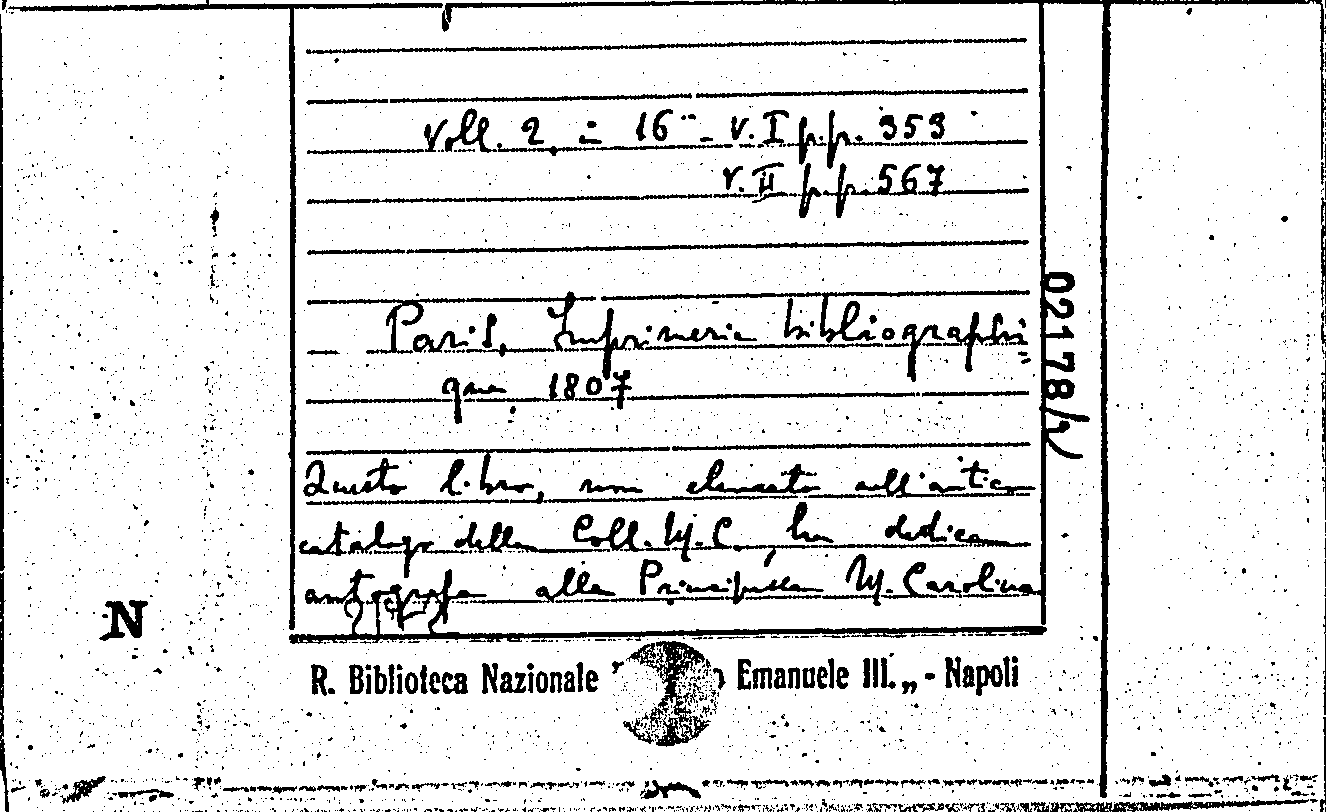 Voll. 2, in 16° - V. I pp. 353
V. II pp. 567
Paris, Imprimerie bibliographi=
que, 1807
Questo libro, non elencato nell'antico
catalogo della Coll. M. C., ha dedica
autografa alla Principessa M. Carolina
021178/
N
R. Biblioteca Nazionale " Emanuele III. „ - Napoli